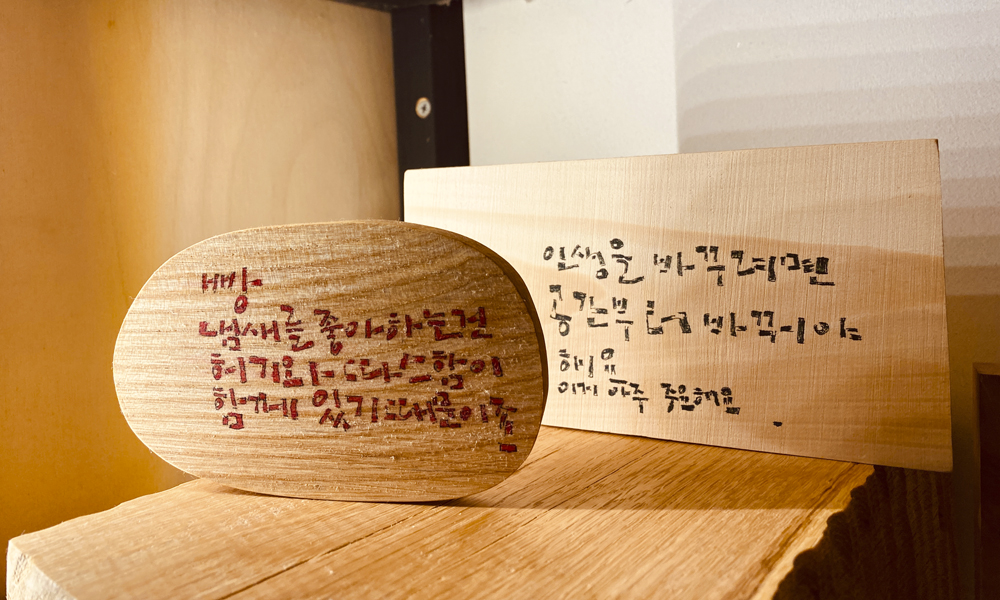 빵
냄새를 좋아하는건
허기와 따스함이
함께 있기때문이죠
인생을 바꾸려면
공간부터 바꿔야
해요
이게 아주 중요해요